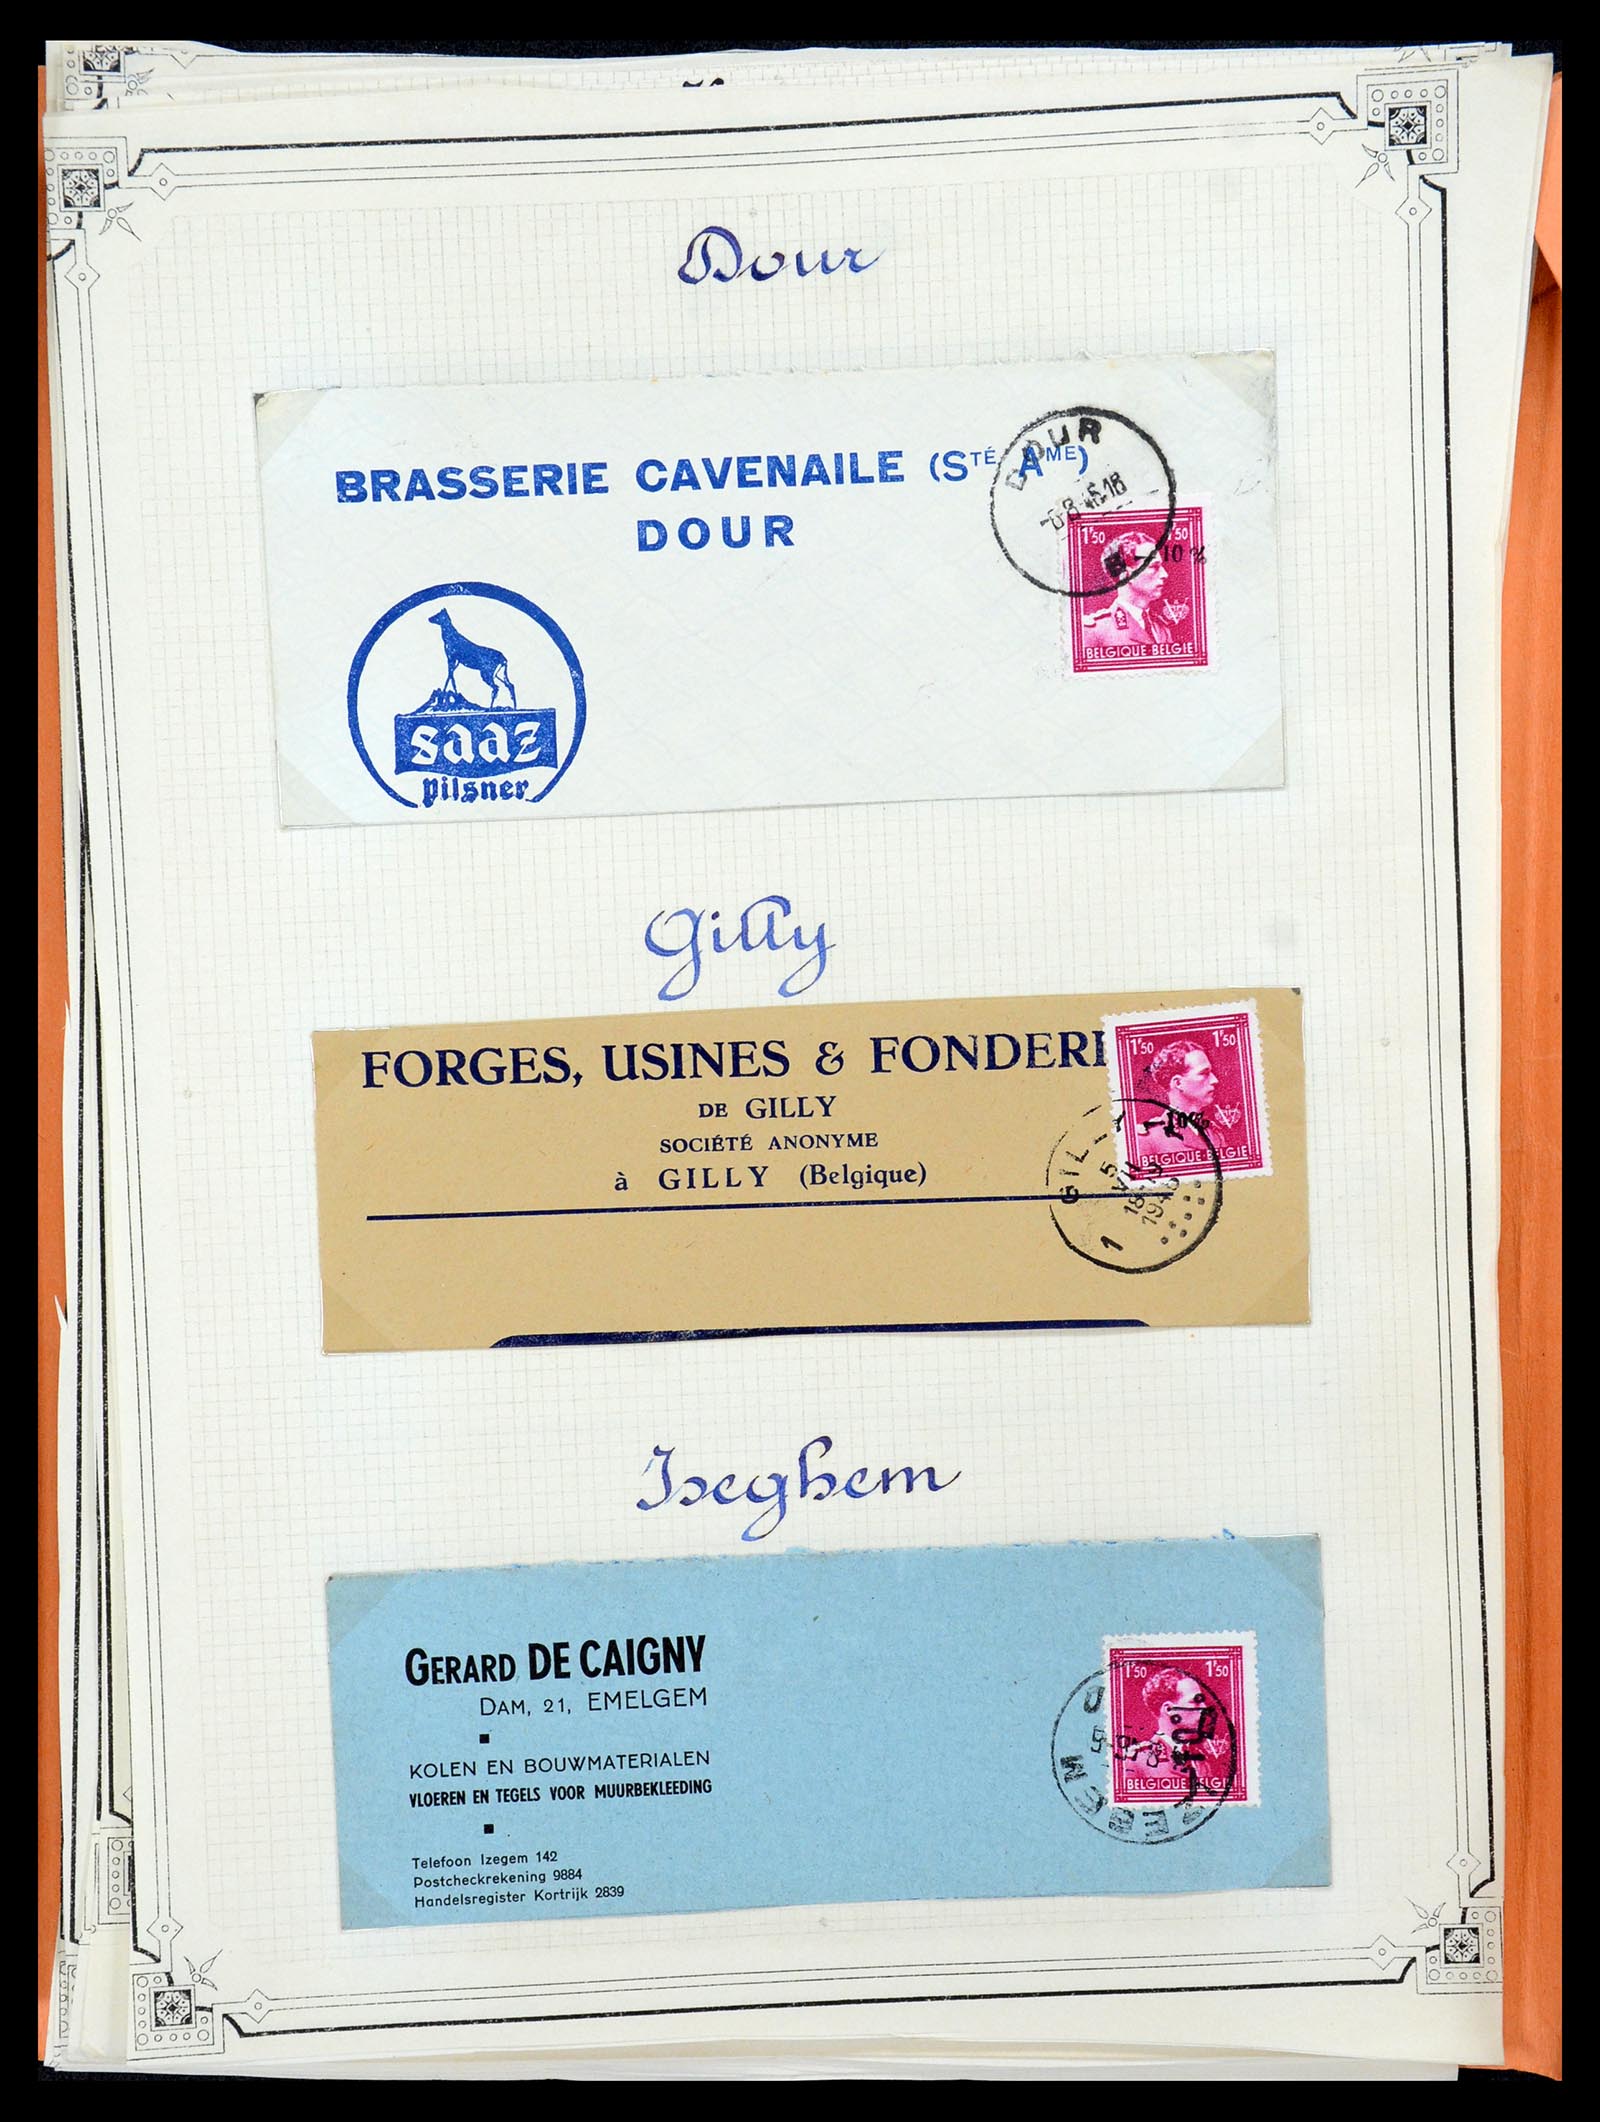 Dour
BRASSERIE CAVENAILE (STÉ AME)
DOUR
DOUR
1F50 50
-10%
BELGIQUE·BELGIE
saaz
pilsner
Gilly
FORGES, USINES & FONDERI
DE GILLY
SOCIÉTÉ ANONYME
à GILLY (Belgique)
1F50 1F50
10%
BELGIQUE·BELGIE
GILLY 1
5
VII
18-19
1946
1
Iseghem
GERARD DE CAIGNY
DAM, 21, EMELGEM
KOLEN EN BOUWMATERIALEN
VLOEREN EN TEGELS VOOR MUURBEKLEEDING
Telefoon Izegem 142
Postcheckrekening 9884
Handelsregister Kortrijk 2839
1F50 1F50
BELGIQUE BELGI